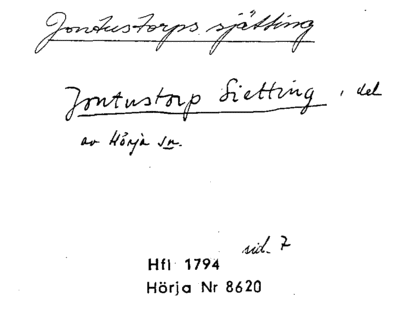 Jontustorps sjätting
Jontustorp Sietting, del
av Hörja sn.
sid. 7
Hfl 1794
Hörja Nr 8620